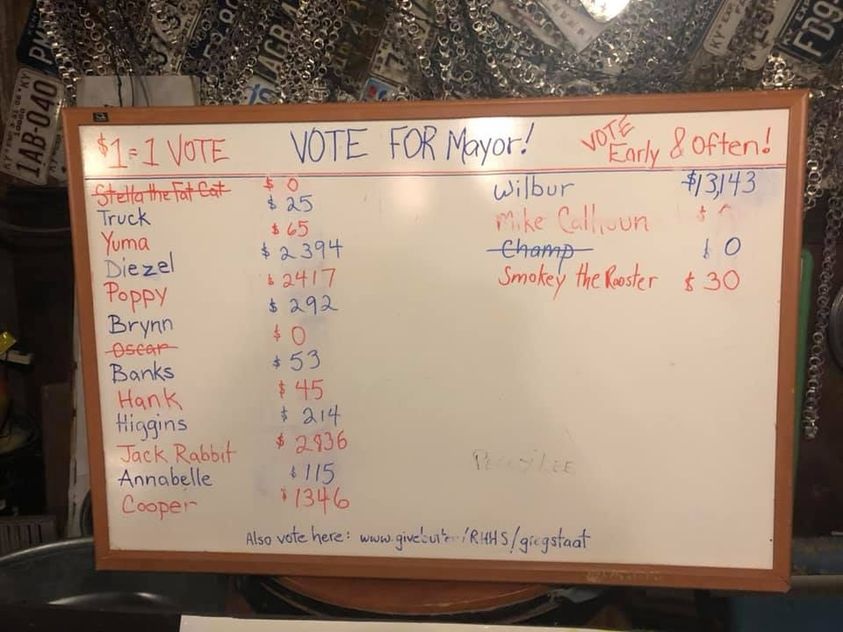 $1=1 VOTE VOTE FOR Mayor! VOTE Early & Often!
Stella the Fat Cat $ 0
Truck $ 25
Yuma $ 65
Diezel $ 2394
Poppy $ 2417
Brynn $ 292
Oscar $ 0
Banks $ 53
Hank $ 45
Higgins $ 214
Jack Rabbit $ 2936
Annabelle $ 115
Cooper $ 1346
Wilbur $13,143
Mike Calhoun $
Champ $ 0
Smokey the Rooster $ 30
Also vote here: /RHHS/gregstaat
1AB-040
KY